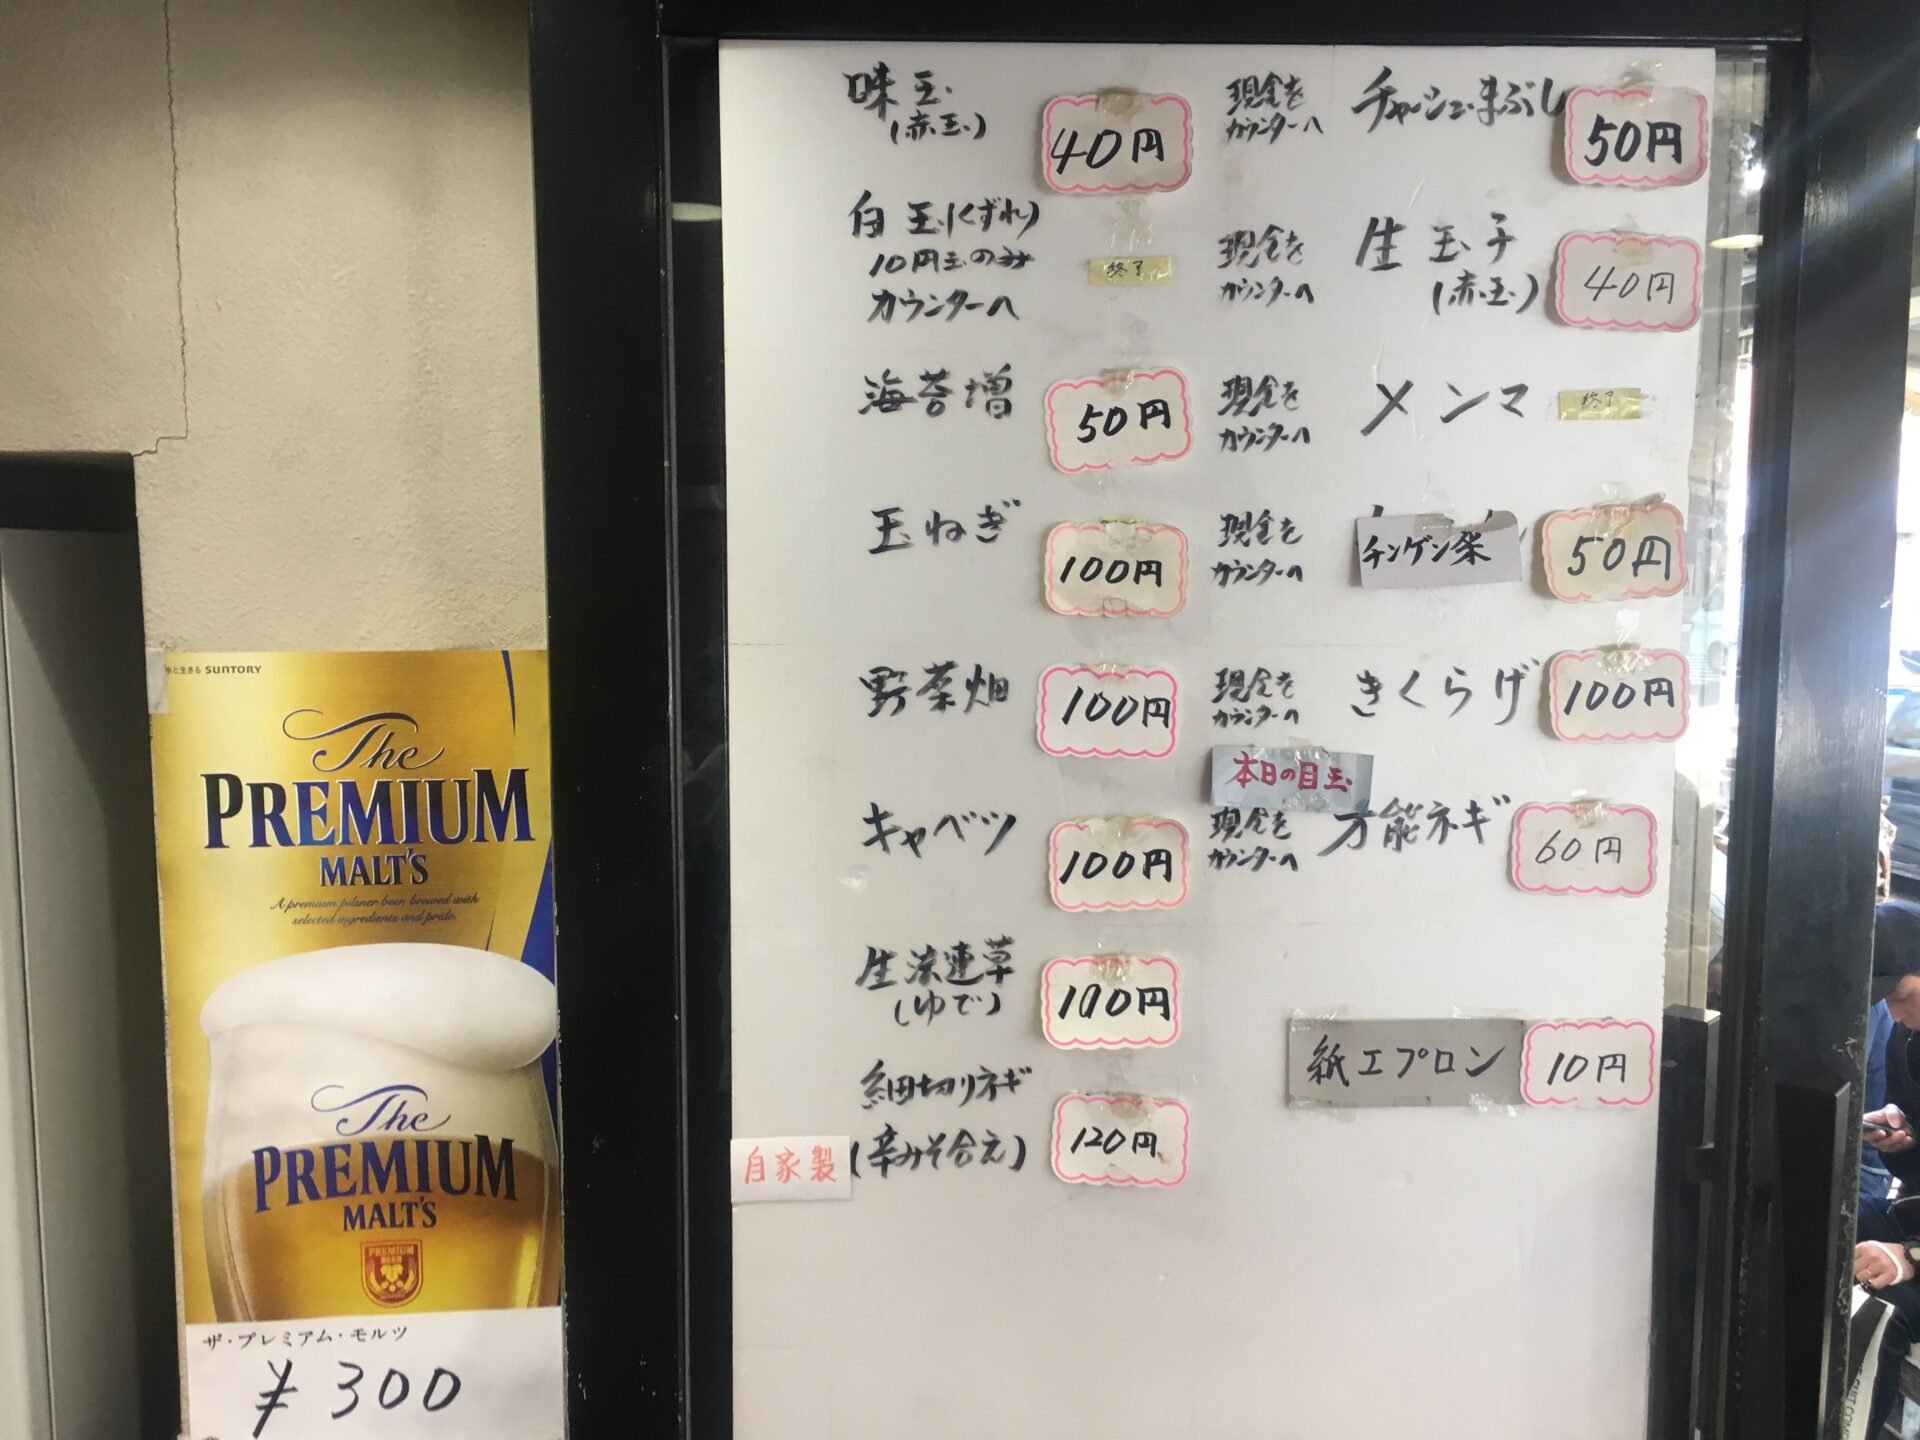 味玉
(赤玉)
40円
白玉(くずれ)
10円玉のみ
カウンターへ
終了
海苔増
50円
玉ねぎ
100円
野菜畑
100円
キャベツ
100円
生法連草
(ゆで)
100円
細切りネギ
自家製
(辛みそ合え)
120円
現金を
カウンターへ
チャーシューまぶし
50円
現金を
カウンターへ
生玉子
(赤玉)
40円
現金を
カウンターへ
メンマ
終了
現金を
カウンターへ
チンゲン菜
50円
現金を
カウンターへ
きくらげ
100円
本日の目玉
現金を
カウンターへ
万能ネギ
60円
紙エプロン
10円
水と生きる SUNTORY
The
PREMIUM
MALT'S
A premium pilsner beer, brewed with
selected ingredients and pride.
The
PREMIUM
MALT'S
PREMIUM
BEER
ザ・プレミアム・モルツ
¥300